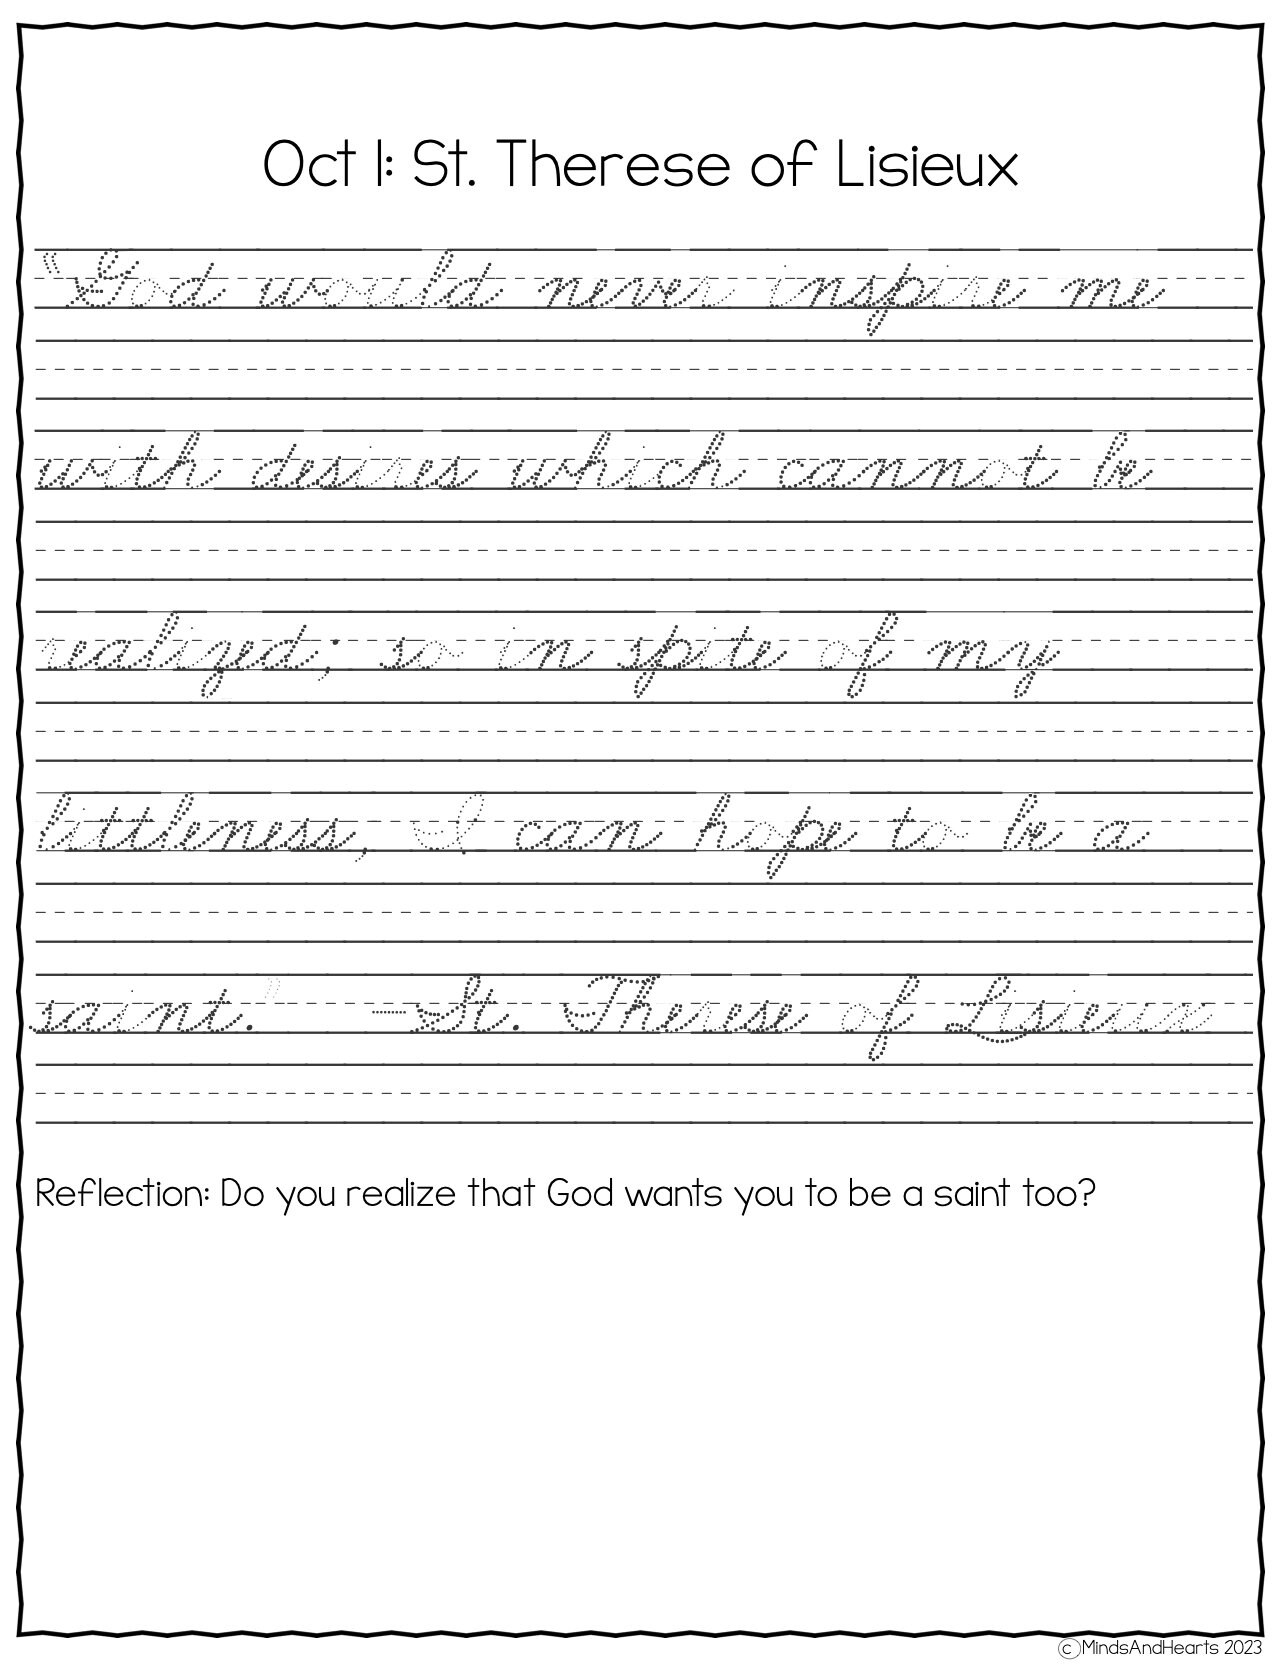 Oct 1: St. Therese of Lisieux
“God would never inspire me
with desires which cannot be
realized; so in spite of my
littleness, I can hope to be a
saint.” -St. Therese of Lisieux
Reflection: Do you realize that God wants you to be a saint too?
©MindsAndHearts 2023